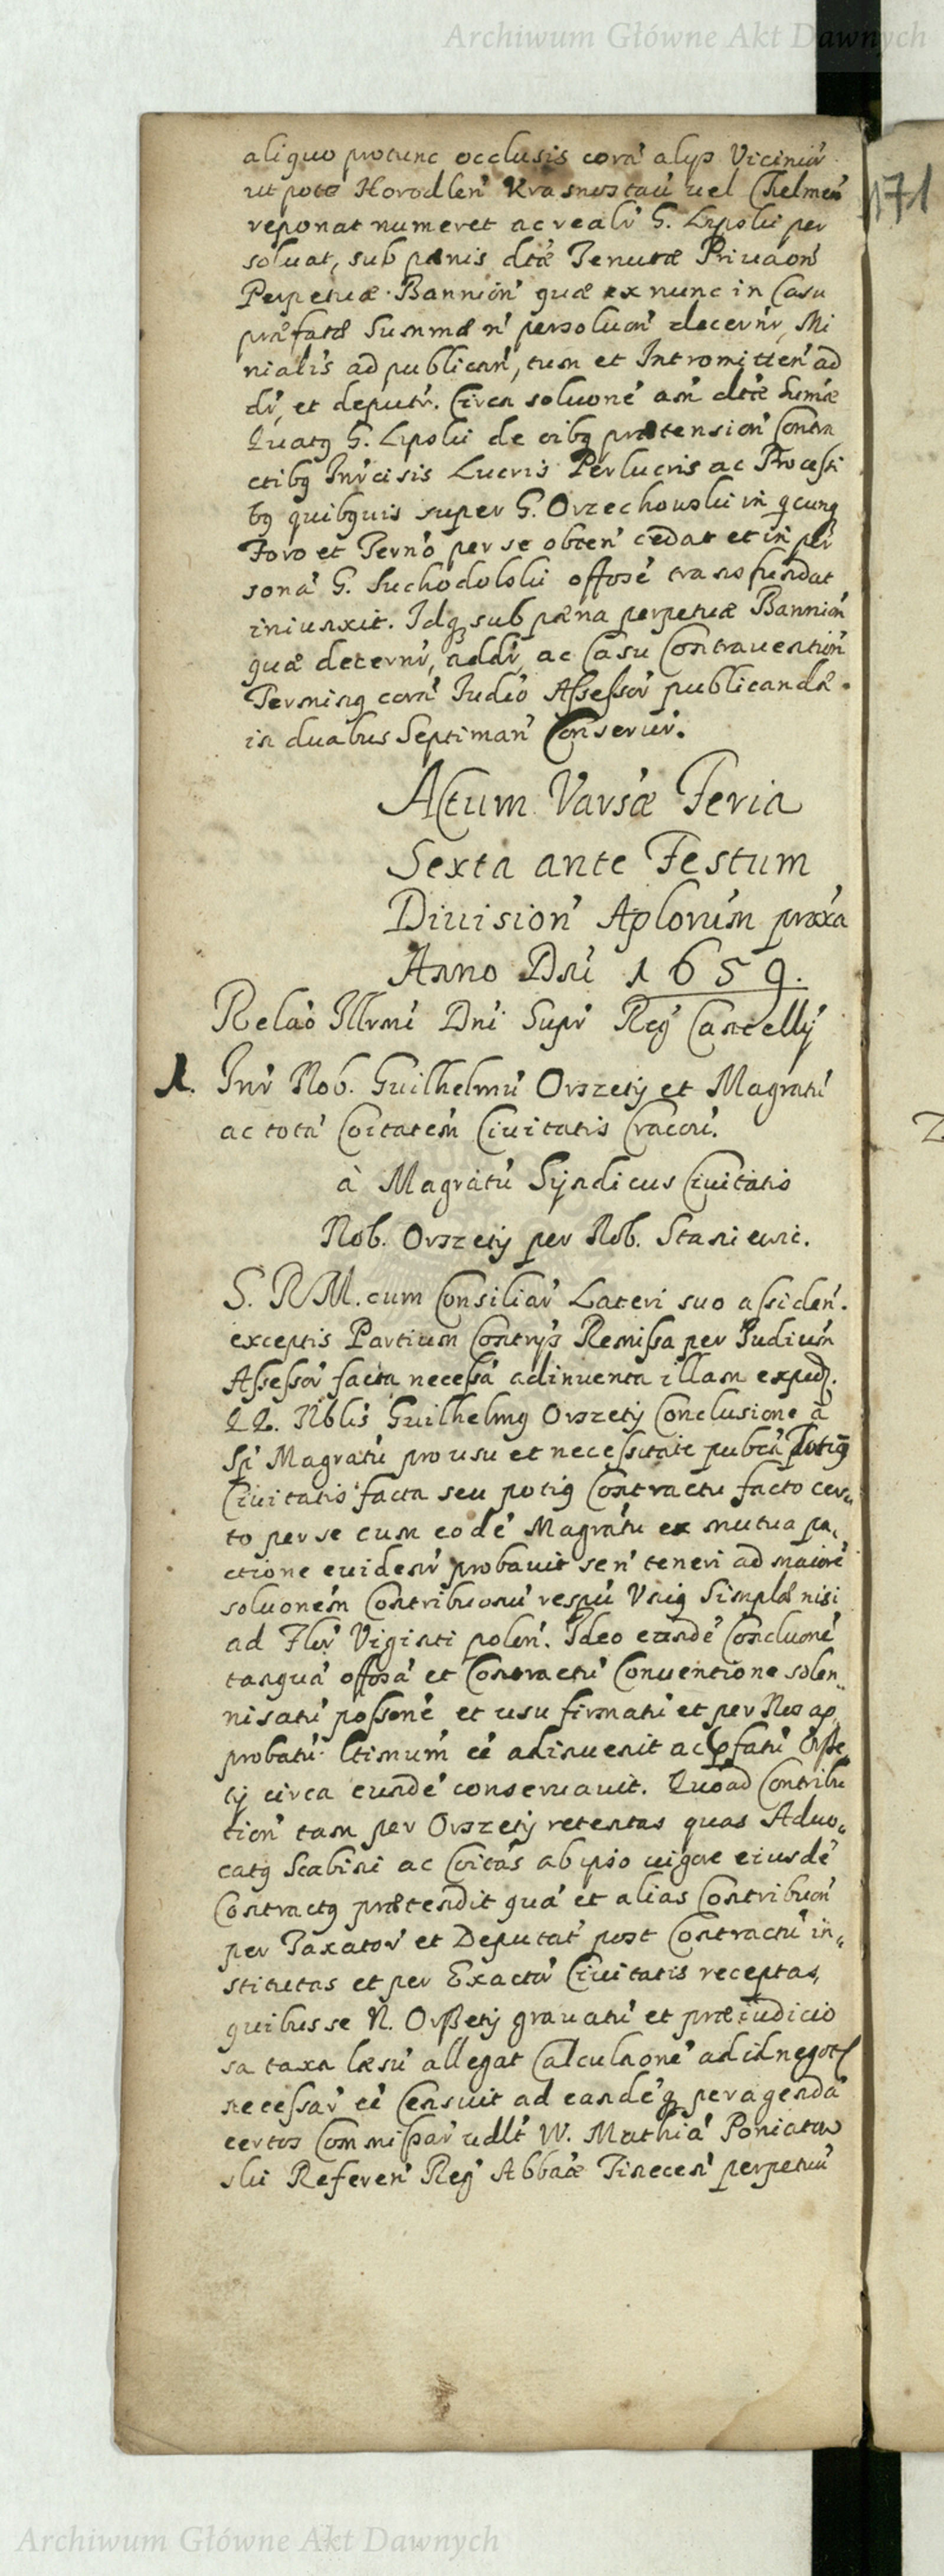 Archiwum Główne Akt Dawnych
aliquo protunc occlusis cora' alys Vicinior'
ut pote Horodlen' Krasnostau' uel Chelmen'
reponat numeret ac realr' G. Lipski per
soluat, sub pænis dtæ Tenutæ Priuaon'
Perpetuæ Bannion' quæ ex nunc in Casu
præfatæ Summæ n' persolutn' decernr', Mi
nialis ad publican', tum et Intromitten' ad
dr', et deputr'. Circa soluone' an' dtæ Sumæ
Quatq G. Lipski de oibq prætension' Contra
ctibq Inrcisis Lucris Perlucris ac Processi
bq quibquis super G. Orzechowski in qcunq
Foro et Termo per se obten' cedat et in per
sona' G. Suchodolski offose' transfundat
iniunxit. Idq sub pæna perpetuæ Bannion'
quæ decernr', addr', ac Casu Contrauention'
Terminq cora' Judio Assessor' publicandæ.
in duabus Septiman' Conserur'.
Actum Varsæ Feria
Sexta ante Festum
Diuision' Aplorum proxa
Anno Dni 1659.
Relao Illrmi Dni Supr' Reg Cancelly
1. Inr' Nob. Guilhelmu' Orszety et Magratu'
ac tota' Coitatem Ciuitatis Cracou'.
à Magratu Syndicus Ciuitatis
Nob. Orszety per Nob. Staniewic.
S. R M. cum Consiliar' Lateri suo assiden'.
exceptis Partium Contrys Remissa per Judium
Assessor' facta necessa' adinuenta illam exped.
QQ. Nblis Guilhelmq Orszety Conclusione à
Sp Magratu pro usu et necessitate pubca Totiq
Ciuitatis facta seu potiq Contractu facto cer„
to per se cum eode' Magratu ex mutua pa„
ctione euidenr' probauit se n' teneri ad maiore'
soluonem Contribuonu' respu' Uniq Simplæ nisi
ad Flor' Viginti polon'. Ideo eande' Concluone'
tanqua' offosa' et Contractu' Conuentione solen„
nisatu' possone' et usu firmatu' et per Nos ap
probatu' ltimum ee' adinuenit ac pfatu' Orsze„
ty circa eunde' conseruauit. Quoad Contribu
tion' tam per Orszety retentas quas Aduo„
catq Scabini ac Coitas ab ipso uigore eiusde'
Contractq prætendit qua' et alias Contribuon'
per Taxator' et Deputat' post Contractu' in„
stitutas et per Exactor' Ciuitatis receptas,
quibus se N. Orszety grauatu' et præiudicio
sa taxa læsu' allegat Calculaone' ad id negoti
necessar' ee' Censuit ad eande'q peragenda'
certos Commissar' udlt W. Mathia' Poniatow
ski Referen' Reg Abbaæ Tinecen' perpetuu'
171
2
Archiwum Główne Akt Dawnych